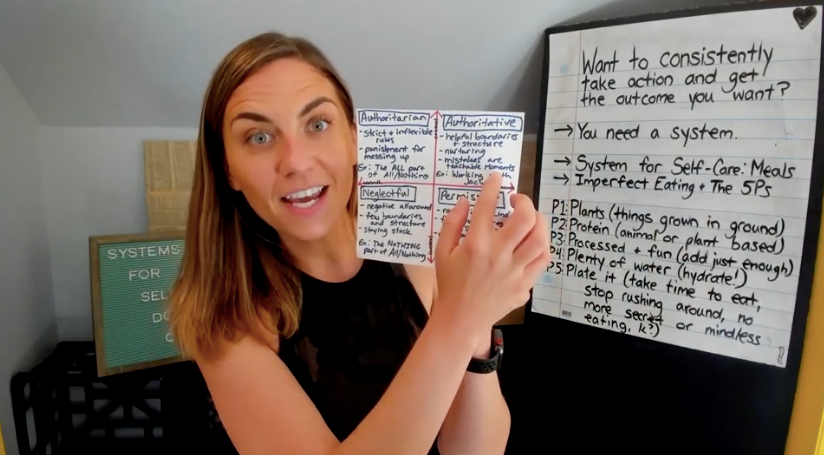 Want to consistently
take action and get
the outcome you want?
→ You need a system.
→ System for Self-Care: Meals
→ Imperfect Eating + The 5Ps
P1: Plants (things grown in ground)
P2: Protein (animal or plant based)
P3: Processed + fun (add just enough)
P4: Plenty of water (hydrate!)
P5: Plate it (take time to eat,
stop rushing around, no
more secret or mindless
eating, k?)
Authoritarian
- strict + inflexible
rules
- punishment for
messing up
Ex: The ALL part
of All/Nothing
Authoritative
- helpful boundaries
+ structure
- nurturing
- mistakes are
teachable moments
Ex: Working
Neglectful
- negative all around
- few boundaries
and structure
- staying stuck
Ex: The NOTHING
part of All/Nothing
SYSTEMS
FOR